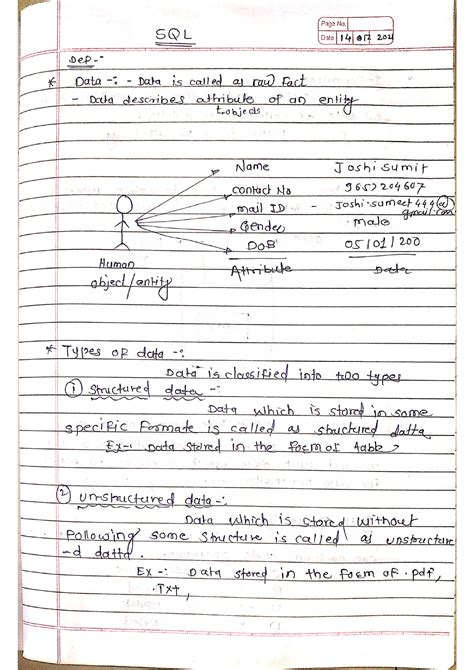 Page No.
SQL
Date 14 07 202
Def -:
* Data -: - Data is called as raw Fact
- Data describes attribute of an entity
objects
Name Joshi Sumit
contact No 9657204607
mail ID - Joshi.sumeet444@
gmail.com
Gender - male
DOB 05/01/200
Human Attribute Data
object/entity
* Types of data -:
Data is classified into two types
① Structured data -:
Data which is stored in some
specific formate is called as structured datta
Ex-: Data stored in the form of table
② un-structured data -:
Data which is stored without
Following some structure is called as unstructure
-d datta.
Ex -: Data stored in the form of .pdf,
.Txt,